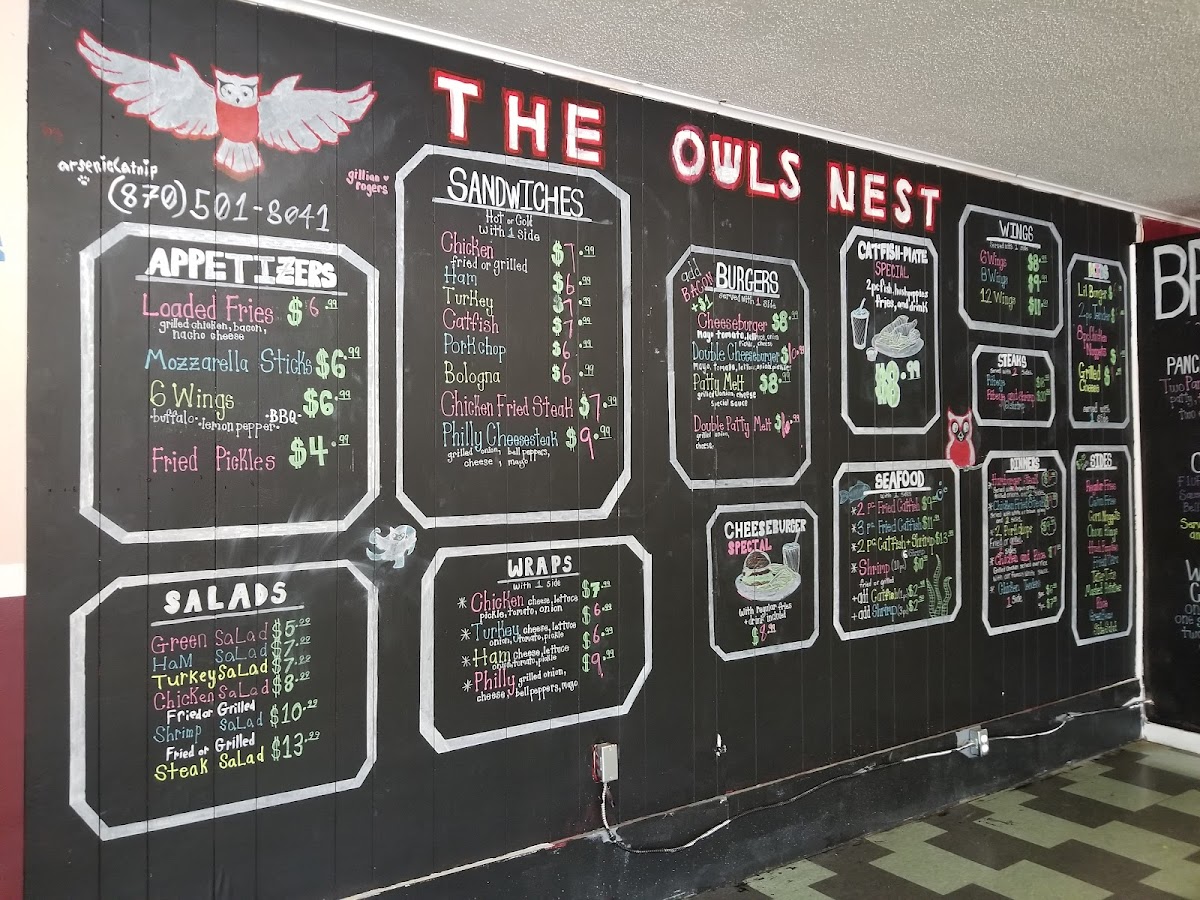 THE OWLS NEST
arsenicCatnip
(870)501-8041
gillian
rogers
APPETIZERS
Loaded Fries $6.99
grilled chicken, bacon,
nacho cheese
Mozzarella Sticks $6.99
6 Wings $6.99
-buffalo- -lemon pepper- -BBQ-
Fried Pickles $4.99
SALADS
Green Salad $5.99
Ham Salad $7.99
Turkey Salad $7.99
Chicken Salad $8.99
Fried or Grilled
Shrimp Salad $10.99
Fried or Grilled
Steak Salad $13.99
SANDWICHES
Hot or Cold
with 1 side
Chicken $7.99
fried or grilled
Ham $6
Turkey $7
Catfish $7
Pork chop $6
Bologna $6
Chicken Fried Steak $7.99
Philly Cheesesteak $9.99
grilled onion, bell peppers,
cheese, mayo
WRAPS
with 1 side
* Chicken cheese, lettuce $7.99
pickle, tomato, onion
* Turkey cheese, lettuce $6.99
onion, tomato, pickle
* Ham cheese, lettuce $6.99
onion, tomato, pickle
* Philly grilled onion, $9.99
cheese, bell peppers, mayo
add
BACON
+$1
BURGERS
served with 1 side
Cheeseburger $8.99
mayo, tomato, lettuce, onion
pickle, cheese
Double Cheeseburger $10.99
Patty Melt $8.99
grilled onion, cheese
special sauce
Double Patty Melt
grilled onion,
cheese
CHEESEBURGER
SPECIAL
with regular fries
+ drink included
$8.99
CATFISH-PLATE
SPECIAL
2pc fish, hushpuppies
fries, and drink
$8.99
SEAFOOD
with 1 side
*2 pc Fried Catfish $9
*3 pc Fried Catfish $11
*2 pc Catfish + Shrimp $13.99
*Shrimp
fried or grilled
+add Catfish
+add Shrimp
WINGS
served with 1 side
6 Wings $8
8 Wings $9
12 Wings $11
STEAKS
served with 2 sides
Ribeye
Ribeye and shrimp
DINNERS
Hamburger Steak
Chicken Fried
2 Pork chops
Chicken and Rice
Chicken Tenders
1 Side
Lil Burger
2 pc Tender
Nuggets
Grilled
Cheese
served with
1 side
SIDES
Regular Fries
Onion Rings
Tater Tots
Mashed Potatoes
Rice
PANC